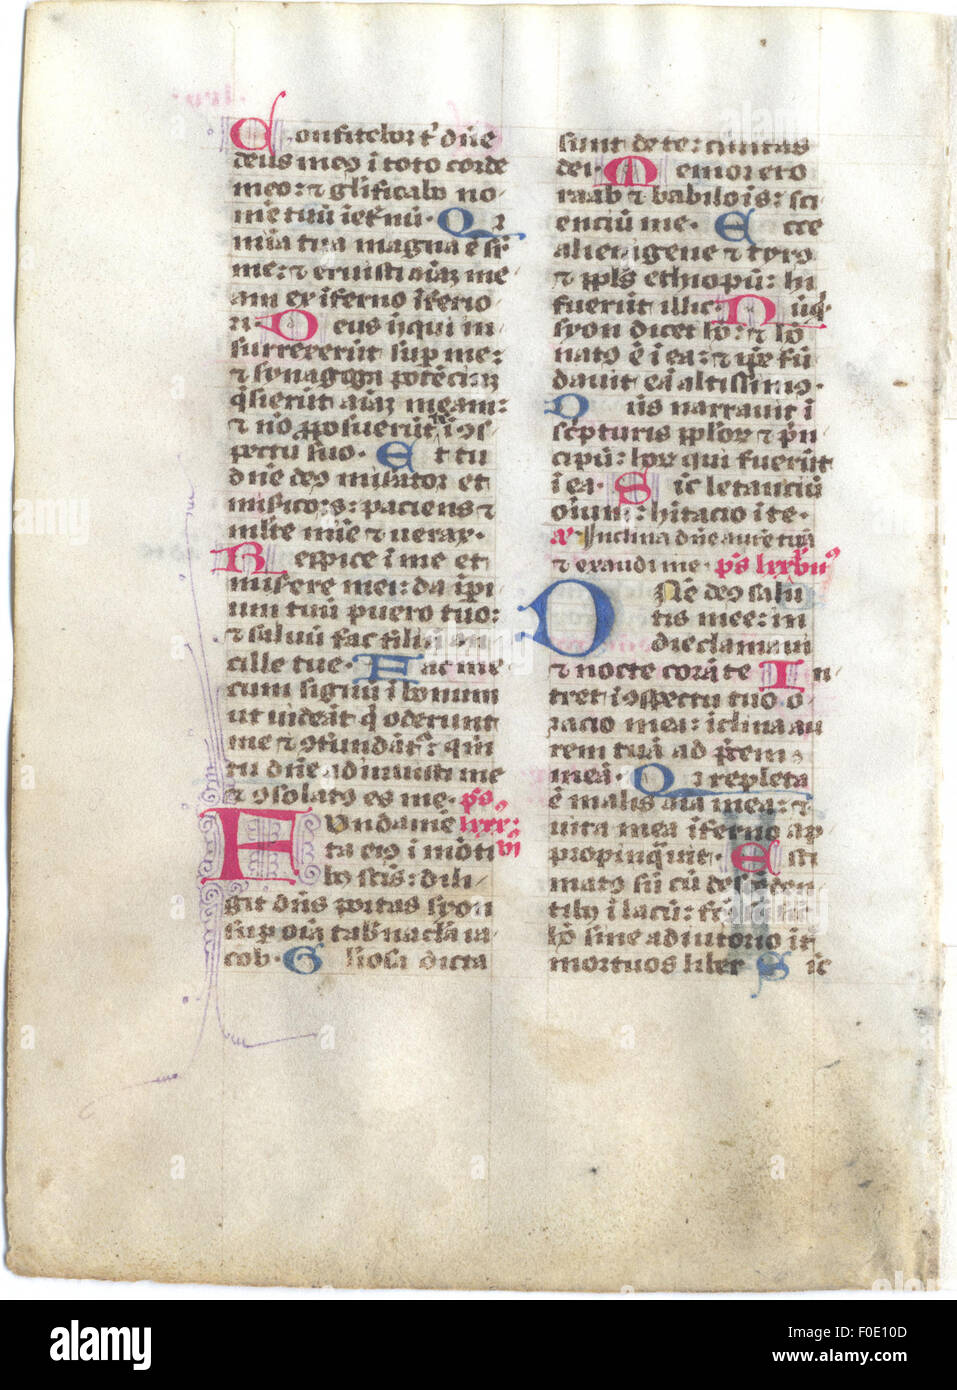 Confitebor t' dn̄e
deus meꝰ ī toto corde
meo: ⁊ gl'ificabo no
mē tuū ī et'nū. Qꝛ
mīa tua magna ē sr̄
me: ⁊ eruisti aīaꝫ me
am ex īferno īferio
ri. Deus īiqui in
surrexerūt sup me:
⁊ synagoga potēciuꝫ
q̄sierūt aīaꝫ meam:
⁊ nō ꝓposuerūt ī ꝯs
pectu suo. Et tu
dn̄e deꝰ misator et
mīsicors: paciens ⁊
ml̄te mīe ⁊ uerax.
Respice ī me et
miserere mei: da īpi
um tuū puero tuo:
⁊ saluū fac filiū an
cille tue. Fac me
cum signū ī bonum
ut uideāt q̄ oderunt
me ⁊ ꝯfundāt': qm̄
tu dn̄e adiuuisti me
⁊ ꝯsolatꝰ es me. pſꝰ
Fundamē lxxx:
ta eiꝰ ī mōti vi
bꝰ scīs: dili
git dn̄s portas syon
sup oīa tab'nacl'a ia
cob. Gl'iosa dicta
sunt de te: ciuitas
dei. Memor ero
raab ⁊ babilōis: sci
enciū me. Ecce
alienigene ⁊ tyrꝰ
⁊ ppl's ethiopū: hi
fuerūt illic. Nūq̄
syon dicet hō: ⁊ hō
natꝰ ē ī ea: ⁊ ip̄e fū
dauit eā altissimꝰ.
Dn̄s narrauit ī
scpturis ppl'oꝝ ⁊ p̄n
cipū: hoꝝ qui fuerūt
ī ea. Sic letanciū
oīum: hitacio ī te.
a' Inclina dn̄e aurē tuā
⁊ exaudi me. pſꝰ lxxxviiꝰ
Dn̄e deꝰ salu
tis mee: in
die clamaui
⁊ nocte corā te In
tret ī ꝯspectu tuo o
racio mea: īclina au
rem tuā ad p̄cem
meā. Qꝛ repleta
ē malis aīa mea: ⁊
uita mea īferno ap
propinq̄uit. Esti
matꝰ sū cū descēden
tibꝰ ī lacū: fc̄s sū sic
hō sine adiutorio īt
mortuos liber Sic
alamy
F0E10D